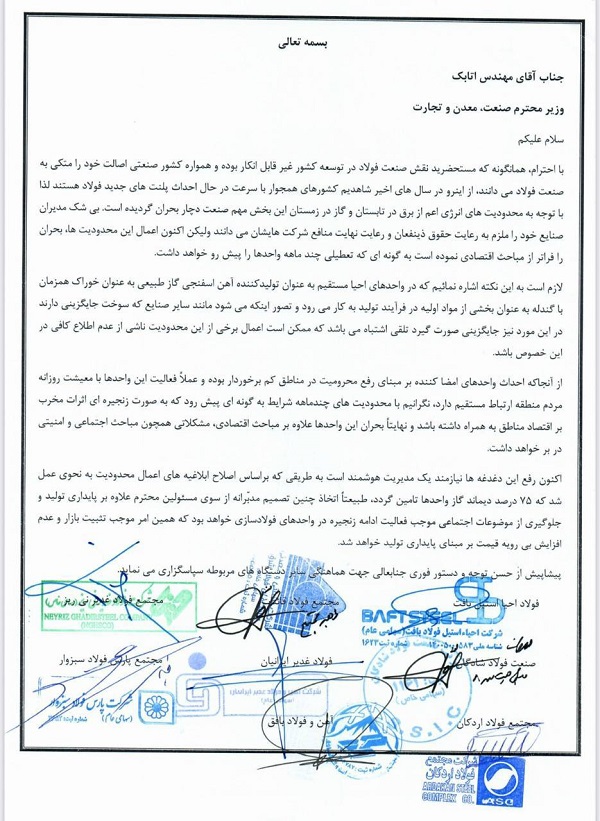 بسمه تعالی
جناب آقای مهندس اتابک
وزیر محترم صنعت، معدن و تجارت
سلام علیکم
با احترام، همانگونه که مستحضرید نقش صنعت فولاد در توسعه کشور غیر قابل انکار بوده و همواره کشور صنعتی اصالت خود را متکی به
صنعت فولاد می دانند، از اینرو در سال های اخیر شاهدیم کشورهای همجوار با سرعت در حال احداث پلنت های جدید فولاد هستند لذا
با توجه به محدودیت های انرژی اعم از برق در تابستان و گاز در زمستان این بخش مهم صنعت دچار بحران گردیده است. بی شک مدیران
صنایع خود را ملزم به رعایت حقوق ذینفعان و رعایت نهایت منافع شرکت هایشان می دانند ولیکن اکنون اعمال این محدودیت ها، بحران
را فراتر از مباحث اقتصادی نموده است به گونه ای که تعطیلی چند ماهه واحدها را پیش رو خواهد داشت.
لازم است به این نکته اشاره نمائیم که در واحدهای احیا مستقیم به عنوان تولیدکننده آهن اسفنجی گاز طبیعی به عنوان خوراک همزمان
با گندله به عنوان بخشی از مواد اولیه در فرآیند تولید به کار می رود و تصور اینکه می شود مانند سایر صنایع که سوخت جایگزینی دارند
در این مورد نیز جایگزینی صورت گیرد تلقی اشتباه می باشد که ممکن است اعمال برخی از این محدودیت ناشی از عدم اطلاع کافی در
این خصوص باشد.
از آنجاکه احداث واحدهای امضا کننده بر مبنای رفع محرومیت در مناطق کم برخوردار بوده و عملاً فعالیت این واحدها با معیشت روزانه
مردم منطقه ارتباط مستقیم دارد، نگرانیم با محدودیت های چندماهه شرایط به گونه ای پیش رود که به صورت زنجیره ای اثرات مخرب
بر اقتصاد مناطق به همراه داشته باشد و نهایتاً بحران این واحدها علاوه بر مباحث اقتصادی، مشکلاتی همچون مباحث اجتماعی و امنیتی
در بر خواهد داشت.
اکنون رفع این دغدغه ها نیازمند یک مدیریت هوشمند است به طریقی که براساس اصلاح ابلاغیه های اعمال محدودیت به نحوی عمل
شد که ۷۵ درصد دیماند گاز واحدها تامین گردد، طبیعتاً اتخاذ چنین تصمیم مدبّرانه از سوی مسئولین محترم علاوه بر پایداری تولید و
جلوگیری از موضوعات اجتماعی موجب فعالیت ادامه زنجیره در واحدهای فولادسازی خواهد بود که همین امر موجب تثبیت بازار و عدم
افزایش بی رویه قیمت بر مبنای پایداری تولید خواهد شد.
پیشاپیش از حسن توجه و دستور فوری جنابعالی جهت هماهنگی سایر دستگاه های مربوطه سپاسگزاری می نماید.
فولاد احیا استیل بافت
مجتمع فولاد
مجتمع فولاد غدیر نی ریز
NEYRIZ GHADIR STEEL
BAFT STEEL
شرکت احیاء استیل فولاد بافت(سهامی عام)
صنعت فولاد شادگان
فولاد غدیر ایرانیان
مجتمع پارس فولاد سبزوار
شرکت پارس فولاد سبزوار
(سهامی عام)
S.I.C
مجتمع فولاد اردکان
آهن و فولاد بافق
شرکت مجتمع
فولاد اردکان
ARDAKAN STEEL
COMPLEX CO.
ASC